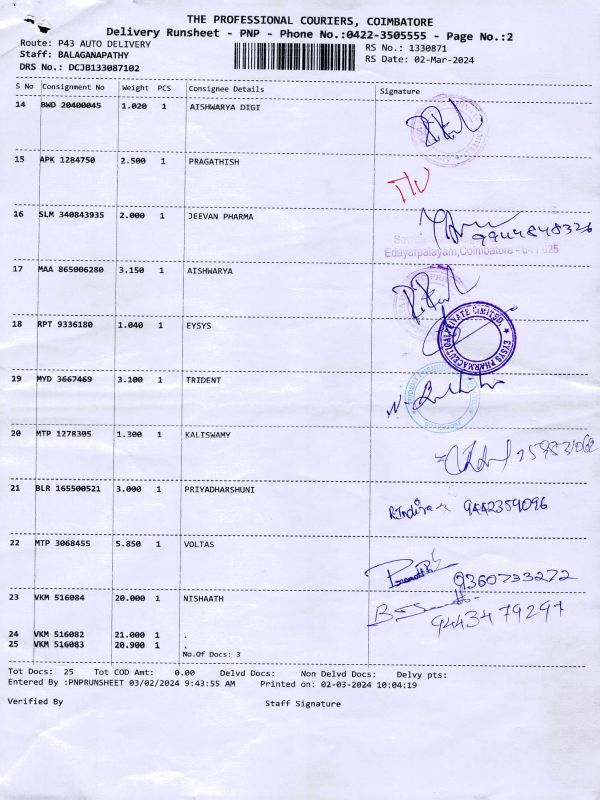 THE PROFESSIONAL COURIERS, COIMBATORE
Delivery Runsheet - PNP - Phone No.:0422-3505555 - Page No.:2
Route: P43 AUTO DELIVERY
Staff: BALAGANAPATHY
DRS No.: DCJB133087102
RS No.: 1330871
RS Date: 02-Mar-2024
S No Consignment No Weight PCS Consignee Details Signature
14 BWD 20400045 1.020 1 AISHWARYA DIGI
15 APK 1284750 2.500 1 PRAGATHISH
16 SLM 340843935 2.000 1 JEEVAN PHARMA
Edayarpalayam, Coimbatore - 641 025
17 MAA 865006280 3.150 1 AISHWARYA
18 RPT 9336180 1.040 1 EYSYS
EYSYS PHARMACEUTICAL PRIVATE LIMITED
19 MYD 3667469 3.100 1 TRIDENT
20 MTP 1278305 1.300 1 KALISWAMY
21 BLR 165500521 3.000 1 PRIYADHARSHUNI
R.Indira 9442359096
22 MTP 3068455 5.850 1 VOLTAS
9360733272
23 VKM 516084 20.000 1 NISHAATH
9443479297
24 VKM 516082 21.000 1 .
25 VKM 516083 20.900 1 .
No.Of Docs: 3
Tot Docs: 25 Tot COD Amt: 0.00 Delvd Docs: Non Delvd Docs: Delvy pts:
Entered By :PNPRUNSHEET 03/02/2024 9:43:55 AM Printed on: 02-03-2024 10:04:19
Verified By Staff Signature